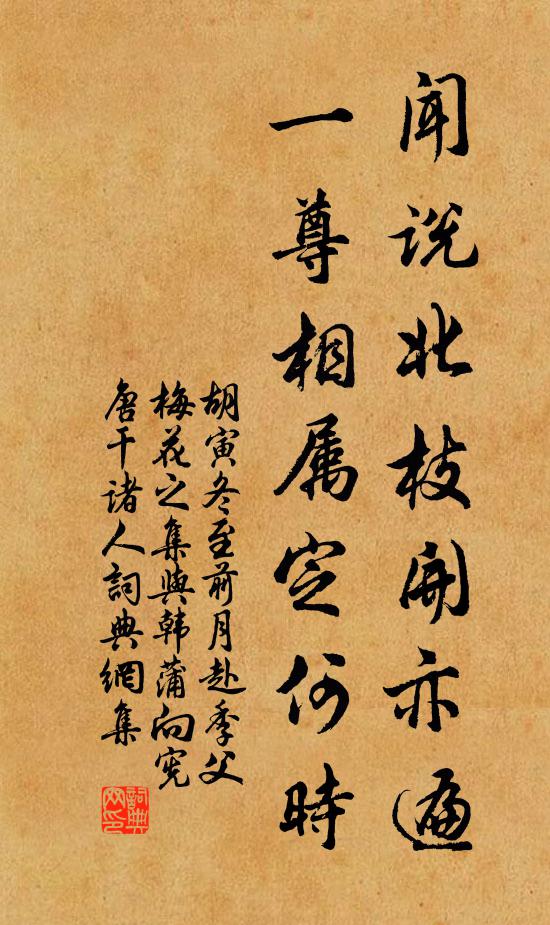 闻说北枝开亦遍
一尊相属定何时
胡寅冬至前月赴季父
梅花之集與韩蒲向宪
唐干诸人詞典網集
詞典网印